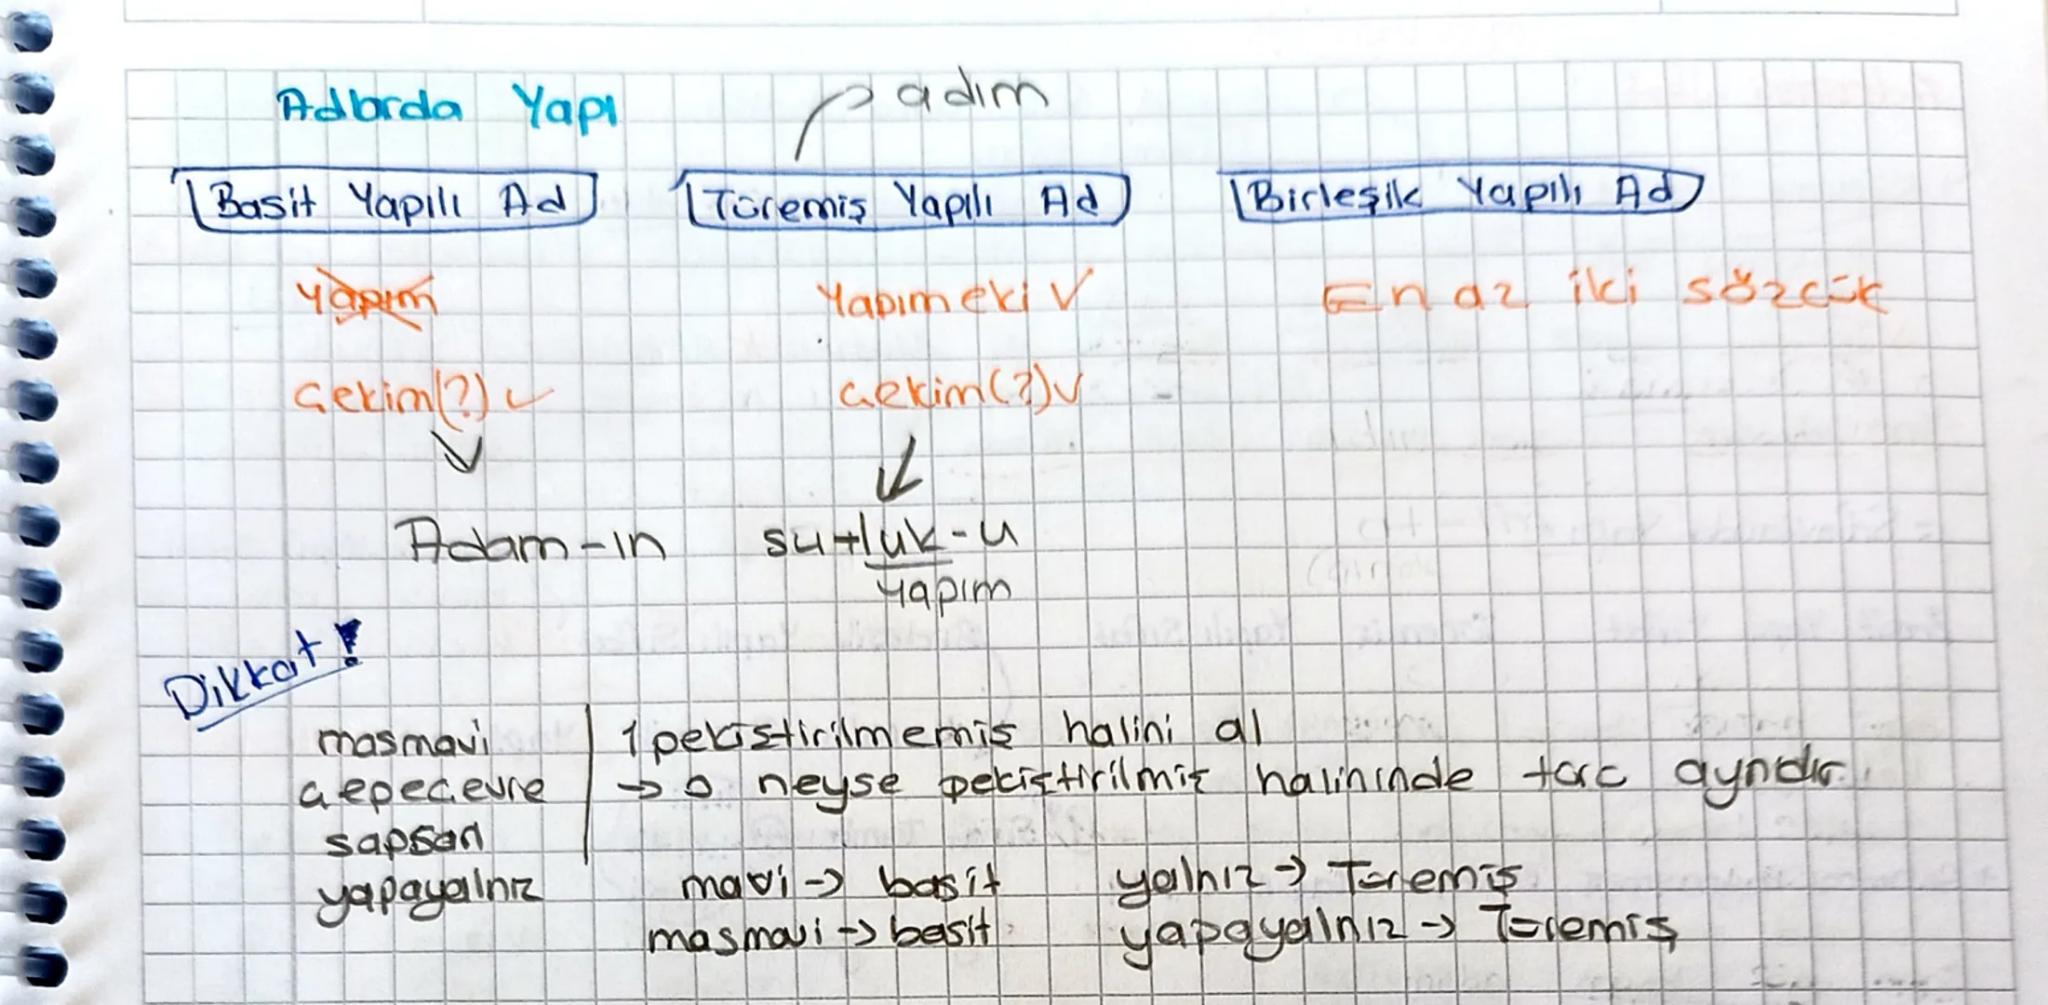 Adlarda Yapı
adım
Basit Yapılı Ad
Türemiş Yapılı Ad
Birleşik Yapılı Ad
yapım
Yapım eki ✓
En az iki sözcük
Çekim(?) ✓
Çekim(?) ✓
Adam-ın
su+luk-u
yapım
Dikkat!
masmavi
1 pekiştirilmemiş halini al
çepeçevre
→ o neyse pekiştirilmiş halininde tarc ayndır.
sapsarı
yapayalnız
mavi → basit
yalnız → Türemiş
masmavi → basit
yapayalnız → Türemiş